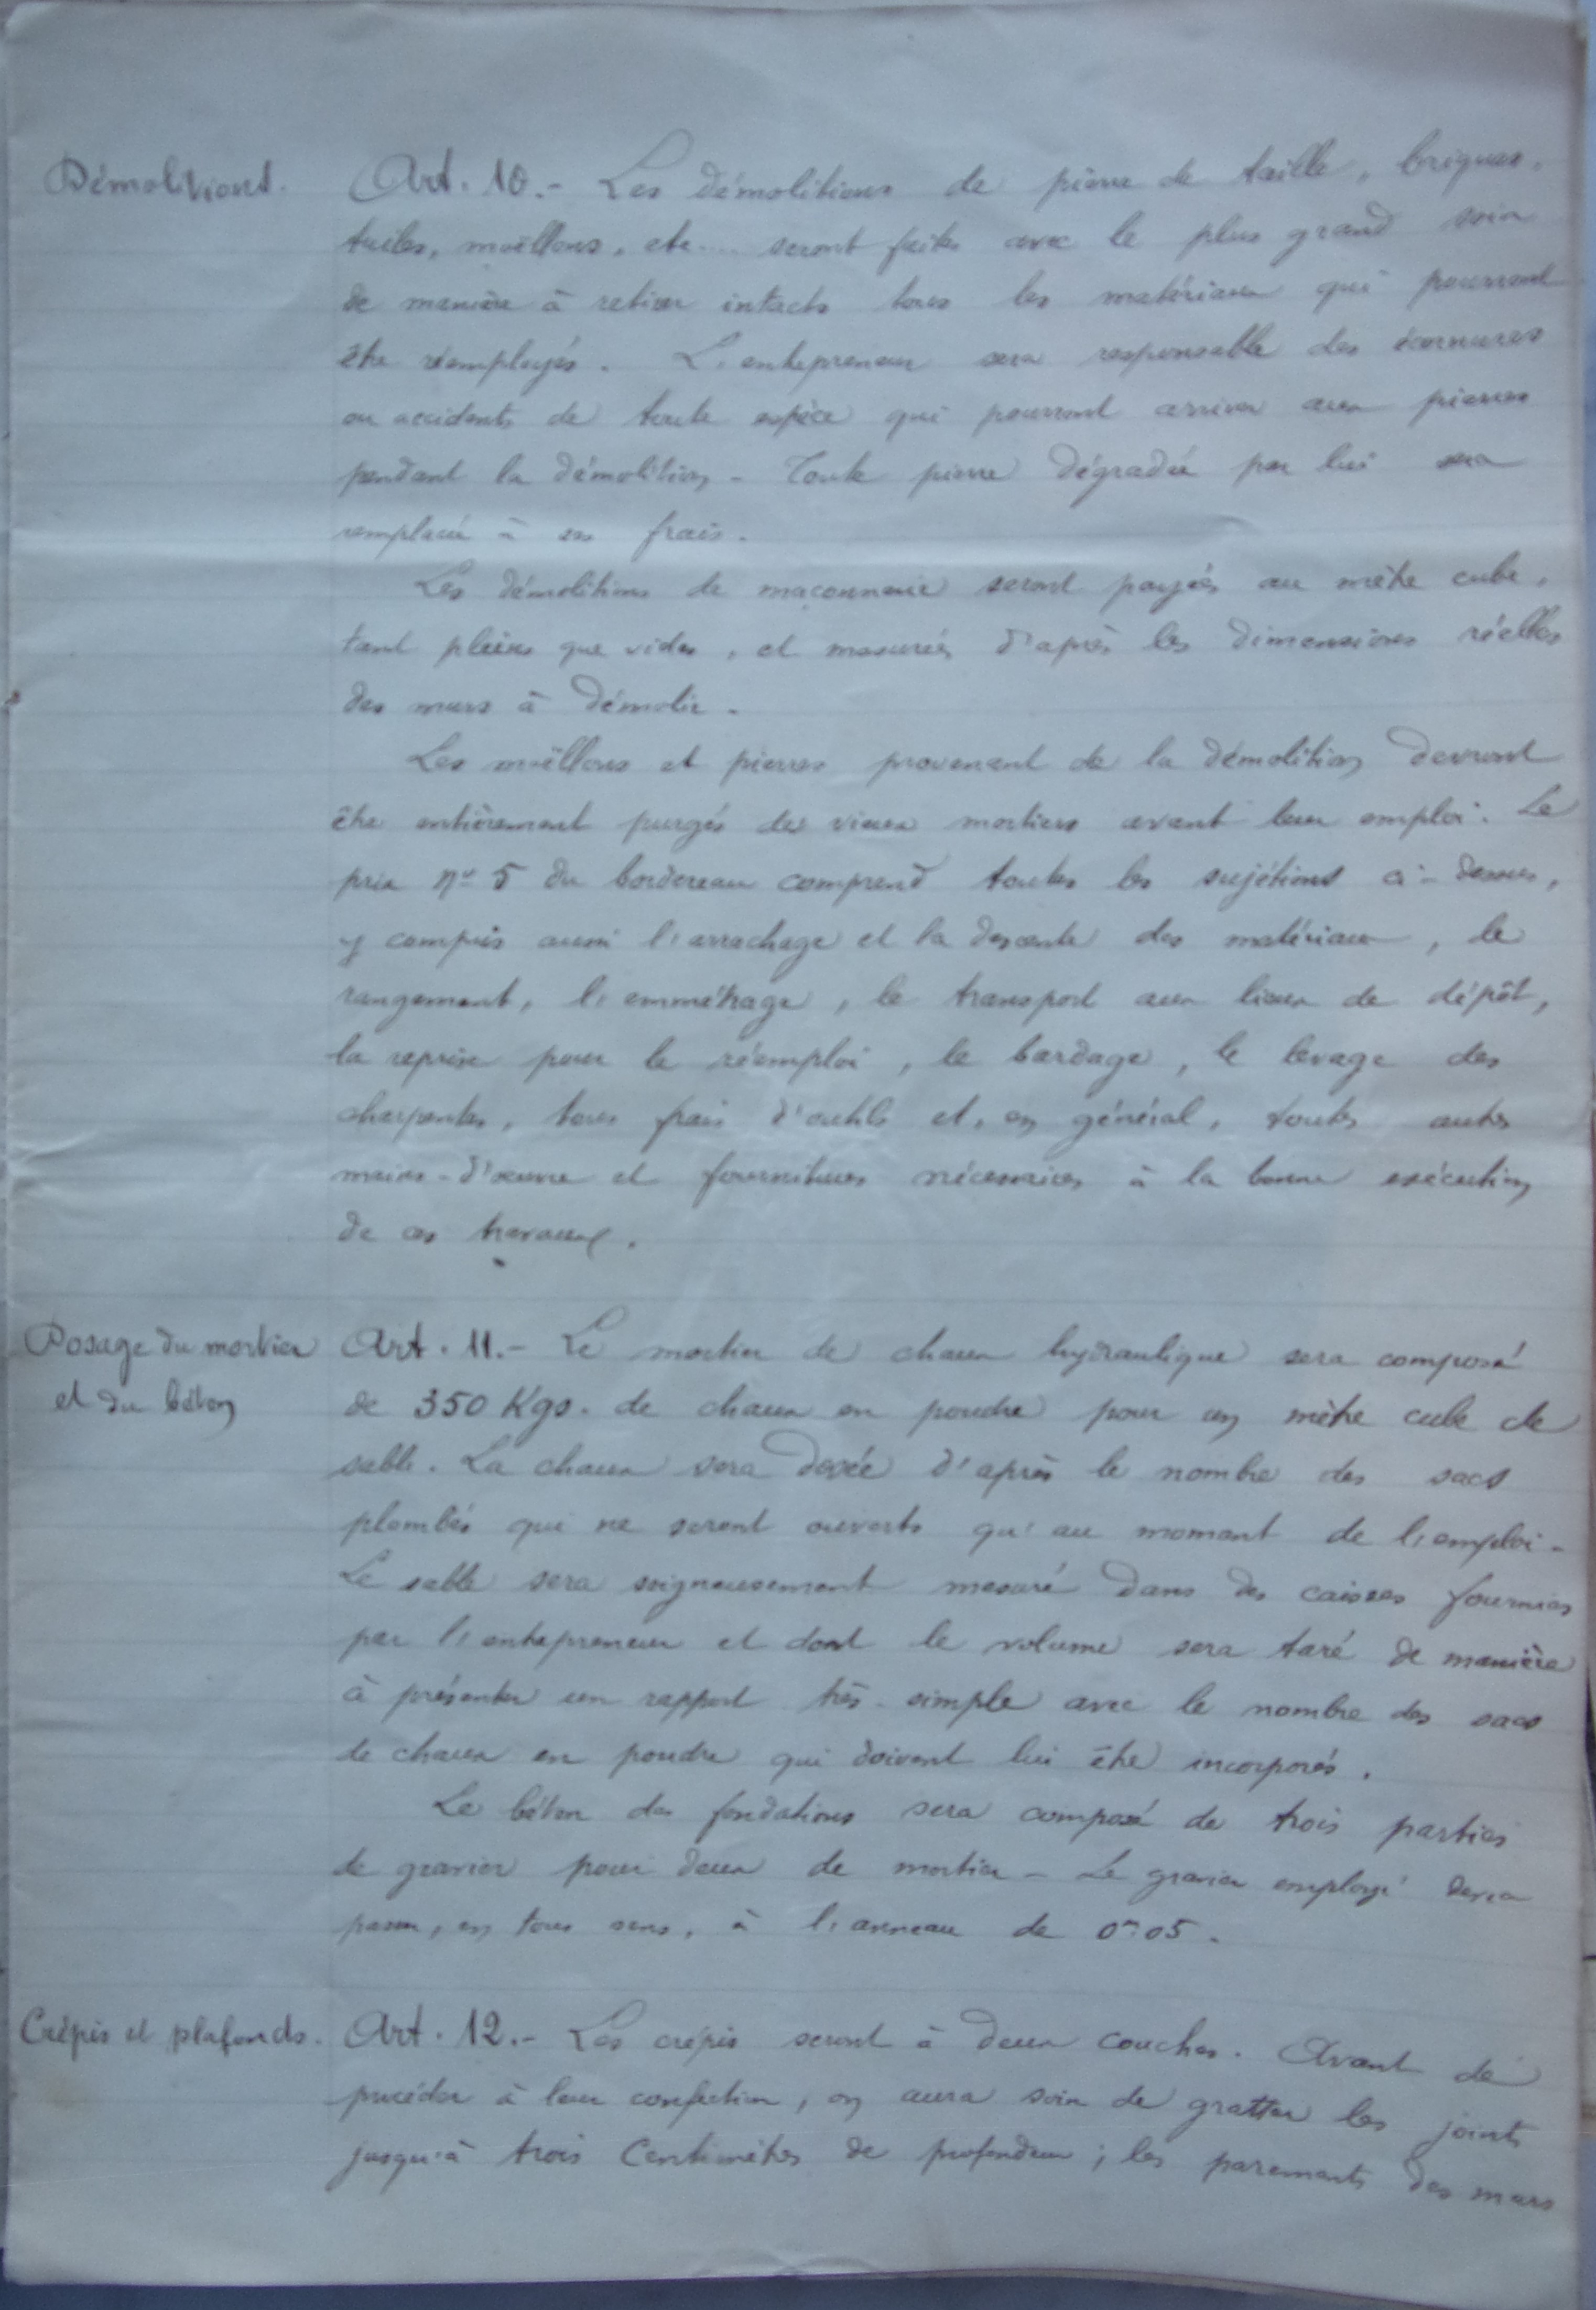 Démolitions. Art. 10.- Les démolitions de pierre de taille, briques,
tuiles, moëllons, etc.... seront faites avec le plus grand soin
de manière à retirer intacts tous les matériaux qui pourront
être réemployés. L'entrepreneur sera responsable des écornures
ou accidents de toute espèce qui pourront arriver aux pierres
pendant la démolition - Toute pierre dégradée par lui sera
remplacée à ses frais.
Les démolitions de maçonnerie seront payées au mètre cube,
tant pleins que vides, et mesurées d'après les dimensions réelles
des murs à démolir.
Les moëllons et pierres provenant de la démolition devront
être entièrement purgés des vieux mortiers avant leur emploi. Le
prix n° 5 du bordereau comprend toutes les sujétions ci-dessus,
y compris aussi l'arrachage et la descente des matériaux, le
rangement, l'emmétrage, le transport aux lieux de dépôt,
la reprise pour le réemploi, le bardage, le levage des
charpentes, tous frais d'outils et, en général, toutes autres
mains-d'œuvre et fournitures nécessaires à la bonne exécution
de ces travaux.
Dosage du mortier Art. 11.- Le mortier de chaux hydraulique sera composé
et du béton de 350 Kgs. de chaux en poudre pour un mètre cube de
sable. La chaux sera dosée d'après le nombre des sacs
plombés qui ne seront ouverts qu'au moment de l'emploi -
Le sable sera soigneusement mesuré dans des caisses fournies
par l'entrepreneur et dont le volume sera taré de manière
à présenter un rapport très-simple avec le nombre des sacs
de chaux en poudre qui doivent lui être incorporés.
Le béton des fondations sera composé de trois parties
de gravier pour deux de mortier - Le gravier employé devra
passer, en tous sens, à l'anneau de 0m05.
Crépis et plafonds. Art. 12.- Les crépis seront à deux couches. Avant de
procéder à leur confection, on aura soin de gratter les joints
jusqu'à trois Centimètres de profondeur ; les parements des murs